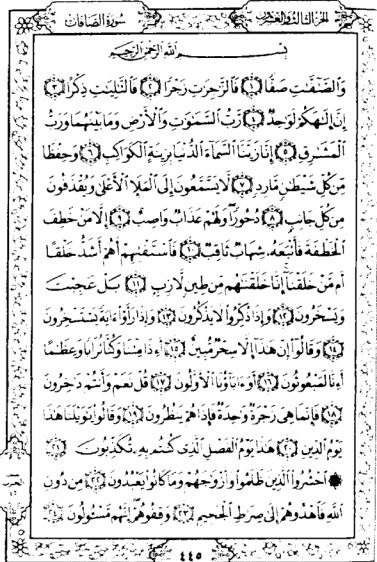 سُورَةُ الصَّافَّات الجُزءُ الثَّالِثُ وَالعِشْرُونَ
بِسْمِ اللَّهِ الرَّحْمَٰنِ الرَّحِيمِ
وَالصَّٰٓفَّٰتِ صَفًّا ١ فَالزَّٰجِرَٰتِ زَجْرًا ٢ فَالتَّٰلِيَٰتِ ذِكْرًا ٣
إِنَّ إِلَٰهَكُمْ لَوَٰحِدٌ ٤ رَّبُّ السَّمَٰوَٰتِ وَالْأَرْضِ وَمَا بَيْنَهُمَا وَرَبُّ
الْمَشَٰرِقِ ٥ إِنَّا زَيَّنَّا السَّمَآءَ الدُّنْيَا بِزِينَةٍ الْكَوَاكِبِ ٦ وَحِفْظًا
مِّن كُلِّ شَيْطَٰنٍ مَّارِدٍ ٧ لَّا يَسَّمَّعُونَ إِلَى الْمَلَإِ الْأَعْلَىٰ وَيُقْذَفُونَ
مِن كُلِّ جَانِبٍ ٨ دُحُورًا وَلَهُمْ عَذَابٌ وَاصِبٌ ٩ إِلَّا مَنْ خَطِفَ
الْخَطْفَةَ فَأَتْبَعَهُۥ شِهَابٌ ثَاقِبٌ ١٠ فَاسْتَفْتِهِمْ أَهُمْ أَشَدُّ خَلْقًا
أَم مَّنْ خَلَقْنَآ إِنَّا خَلَقْنَٰهُم مِّن طِينٍ لَّازِبٍ ١١ بَلْ عَجِبْتَ
وَيَسْخَرُونَ ١٢ وَإِذَا ذُكِّرُوا۟ لَا يَذْكُرُونَ ١٣ وَإِذَا رَأَوْا۟ ءَايَةً يَسْتَسْخِرُونَ
١٤ وَقَالُوٓا۟ إِنْ هَٰذَآ إِلَّا سِحْرٌ مُّبِينٌ ١٥ أَءِذَا مِتْنَا وَكُنَّا تُرَابًا وَعِظَٰمًا
أَءِنَّا لَمَبْعُوثُونَ ١٦ أَوَءَابَآؤُنَا الْأَوَّلُونَ ١٧ قُلْ نَعَمْ وَأَنتُمْ دَٰخِرُونَ
١٨ فَإِنَّمَا هِىَ زَجْرَةٌ وَٰحِدَةٌ فَإِذَا هُمْ يَنظُرُونَ ١٩ وَقَالُوا۟ يَٰوَيْلَنَا هَٰذَا
يَوْمُ الدِّينِ ٢٠ هَٰذَا يَوْمُ الْفَصْلِ الَّذِى كُنتُم بِهِۦ تُكَذِّبُونَ ٢١
۞ احْشُرُوا۟ الَّذِينَ ظَلَمُوا۟ وَأَزْوَٰجَهُمْ وَمَا كَانُوا۟ يَعْبُدُونَ ٢٢ مِن دُونِ
اللَّهِ فَاهْدُوهُمْ إِلَىٰ صِرَٰطِ الْجَحِيمِ ٢٣ وَقِفُوهُمْ إِنَّهُم مَّسْـُٔولُونَ ٢٤
٤٤٥